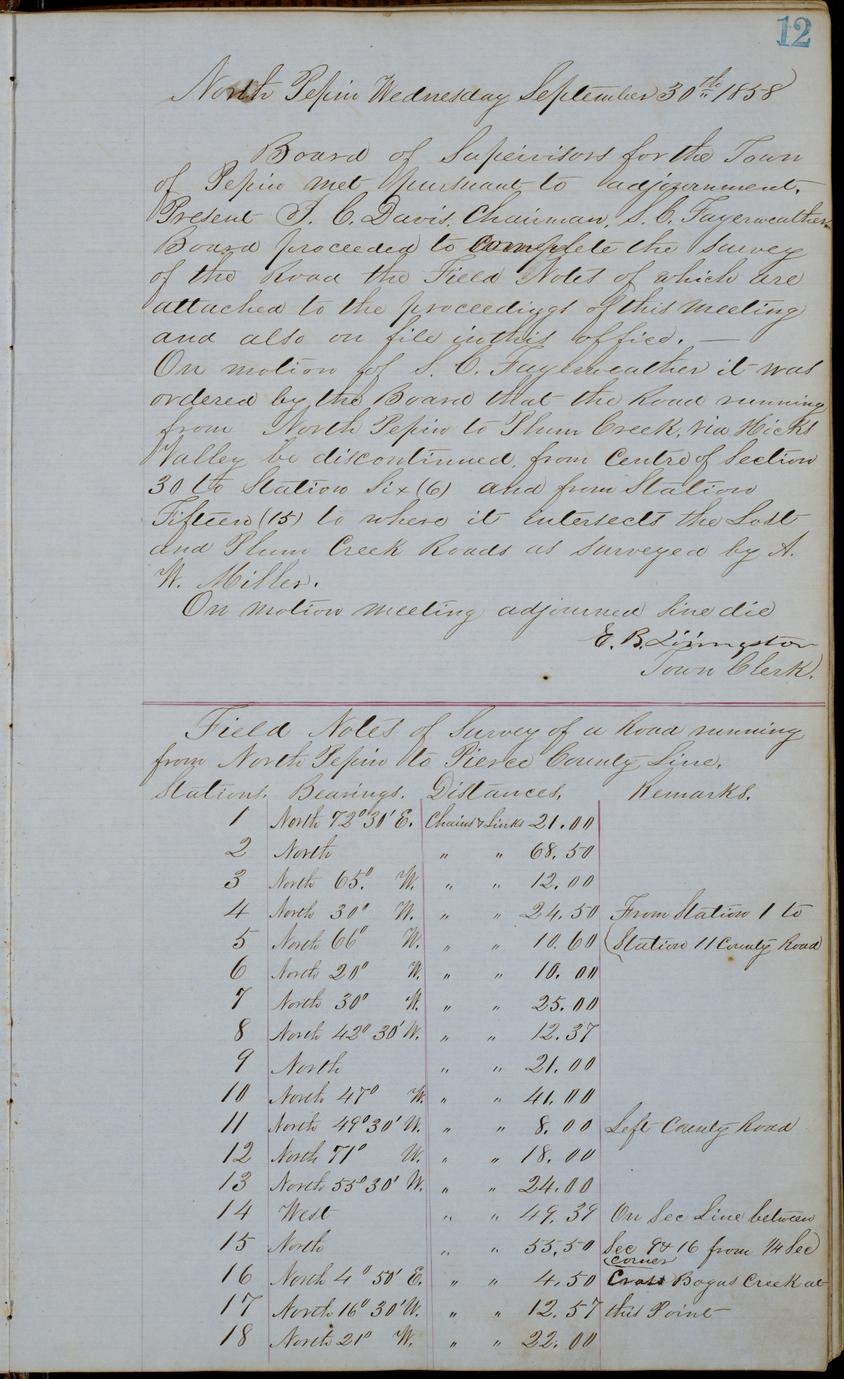 12
North Pepin Wednesday September 30th 1858
Board of Supervisors for the Town
of Pepin met pursuant to adjournment.
Present J. C. Davis, Chairman, S. C. Fayerweather
Board proceeded to complete the Survey
of the Road the Field Notes of which are
attached to the proceedings of this meeting
and also on file in this office. —
On motion of S. C. Fayerweather it was
ordered by the Board that the Road running
from North Pepin to Plum Creek, via Hicks
Valley be discontinued, from Centre of Section
30 to Station Six (6) and from Station
Fifteen (15) to where it intersects the Lost
and Plum Creek Roads as surveyed by A.
W. Miller.
On motion meeting adjourned Sine die
E. B. Livingston
Town Clerk.
Field Notes of Survey of a Road running
from North Pepin to Pierce County Line.
Stations. Bearings. Distances. Remarks.
1 North 72° 30' E. Chains & Links 21.00
2 North " " 68.50
3 North 65° W. " " 12.00
4 North 30° W. " " 24.50 From Station 1 to
5 North 66° W. " " 10.60 (Station 11 County Road
6 North 20° W. " " 10.00
7 North 30° W. " " 25.00
8 North 42° 30' W. " " 12.37
9 North " " 21.00
10 North 47° W. " " 41.00
11 North 49° 30' W. " " 8.00 Left County Road
12 North 71° W. " " 18.00
13 North 55° 30' W. " " 24.00
14 West " " 49.39 On Sec Line between
15 North " " 55.50 Sec 9 & 16 from 1/4 Sec
corner
16 North 4° 50' E. " " 4.50 Cross Bogus Creek at
17 North 16° 30' W. " " 12.57 this Point
18 North 21° W. " " 22.00